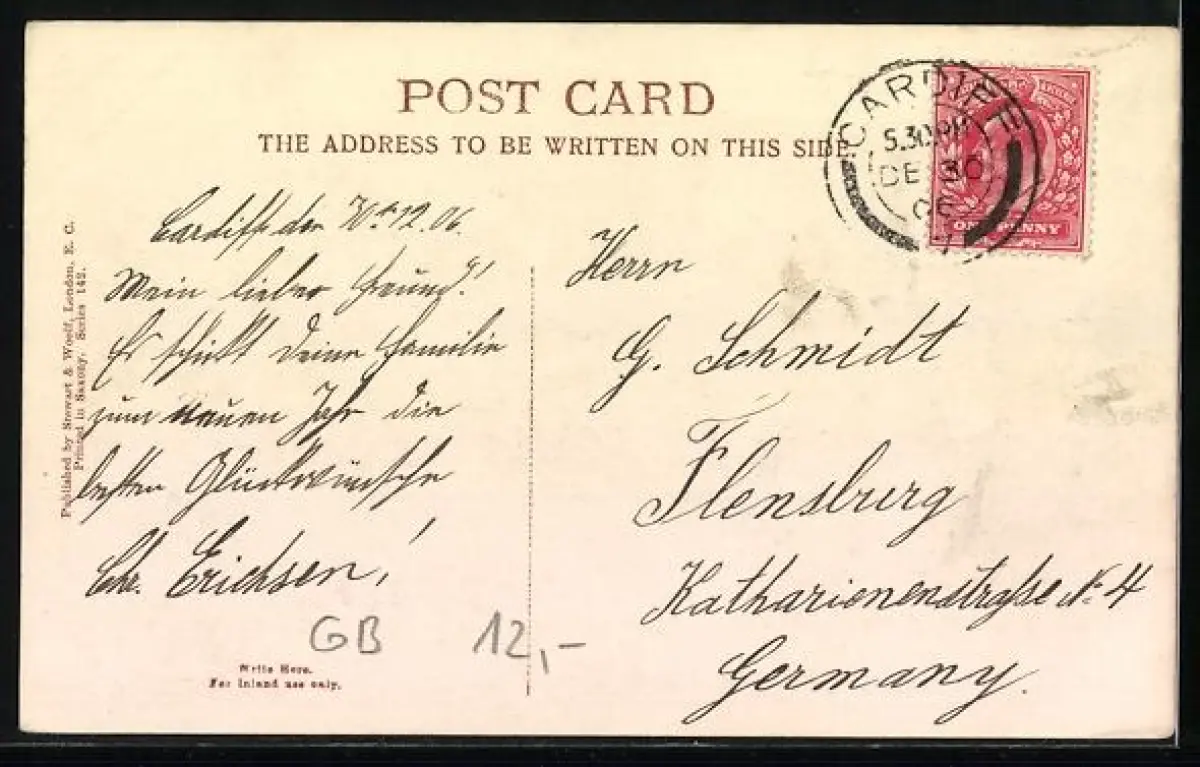 POST CARD
THE ADDRESS TO BE WRITTEN ON THIS SIDE
CARDIFF
5.30 PM
DE 30
06
ONE PENNY
Published by Stewart & Woolf, London, E. C.
Printed in Saxony. Series 142.
Cardiff den 12.06.
Mein lieber Freund!
Es schickt Deiner Familie
zum neuen Jahr die
besten Glückwünsche
Chr. Erichsen!
Herrn
G. Schmidt
Flensburg
Katharienenstraße № 4
Germany.
GB 12,-
Write Here.
For Inland use only.